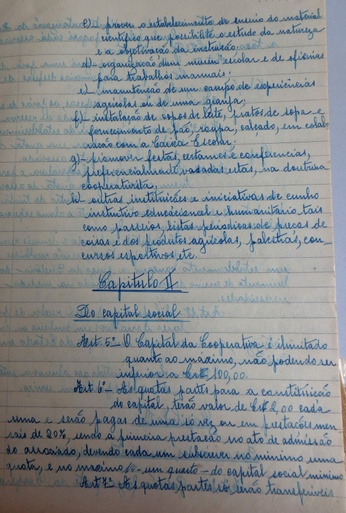 c) prover o estabelecimento de ensino do material
científico que possibilite o estudo da natureza
e a objetivação da instrução.
d) organização dum museu escolar e de oficinas
para trabalhos manuais;
e) manutenção de um campo de experiencias
agricolas ou de uma granja;
f) instalação de copos de leite, pratos de sopa e
fornecimento de pão, roupa, calçado, em colab-
ração com a Caixa Escolar;
g) promover festas, certames e conferencias,
preferencialmente vasadas estas, na doutrina
cooperativista;
h) outras instituições e iniciativas de cunho
instrutivo educacional e humanitário tais
como passeios, listas periodicas de preços de
coisas e dos produtos agricolas, palestras, con-
cursos esportivos etc.
Capitulo II
Do capital social
Art. 5º O Capital da Cooperativa é ilimitado
quanto ao maximo, não podendo ser
inferior a Cr$ 100,00.
Art 6º As quotas partes para a constituição
do capital, terão valor de Cr$ 2,00 cada
uma e serão pagas de uma só vez ou em prestações men
sais de 20% sendo a primeira prestação no ato de admissão
do associado, devendo cada um subscrever no minimo uma
quota, e no maximo um quarto do capital social minimo
Art 7º As quotas partes só serão transferiveis